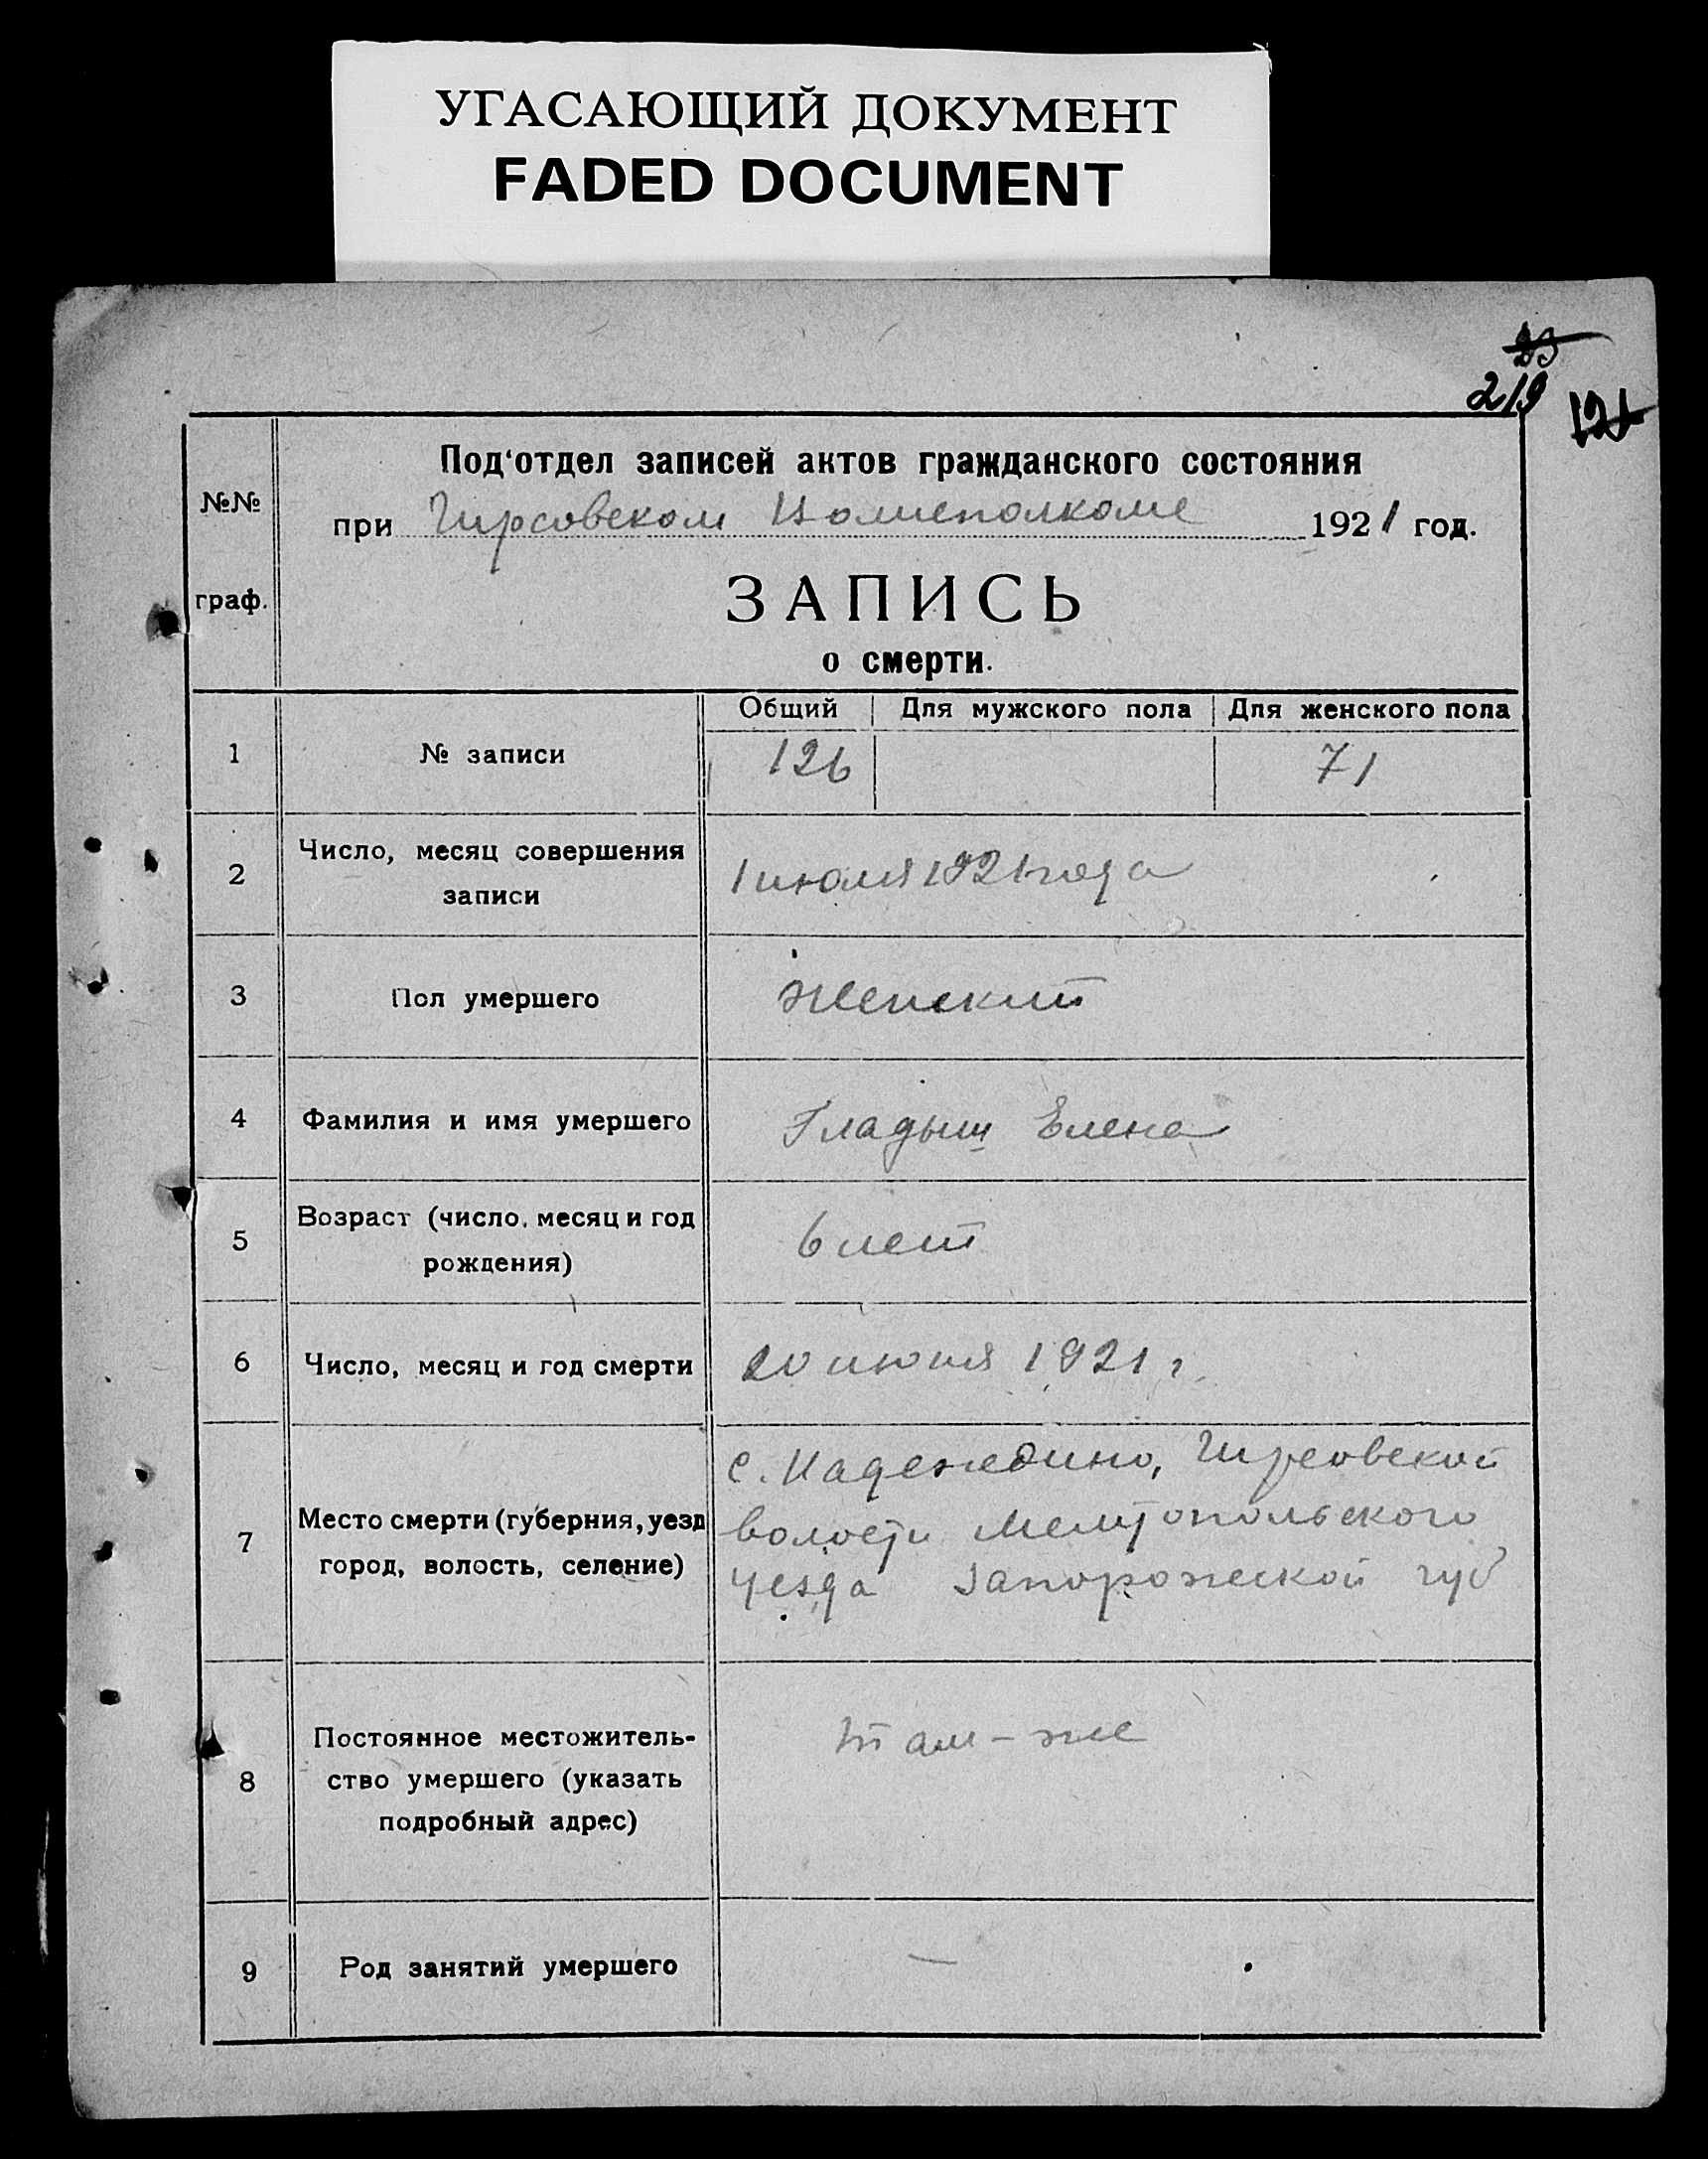 УГАСАЮЩИЙ ДОКУМЕНТ
FADED DOCUMENT
23
219
121
№№
граф.
Под‘отдел записей актов гражданского состояния
при Гирсовском Волисполкоме 1921 год.
ЗАПИСЬ
о смерти.
Общий Для мужского пола Для женского пола
1 № записи 126 71
2 Число, месяц совершения
записи
1 июля 1921 года
3 Пол умершего Женский
4 Фамилия и имя умершего Гладыш Елена
5 Возраст (число, месяц и год
рождения)
6 лет
6 Число, месяц и год смерти 20 июня 1921 г.
7 Место смерти (губерния, уезд
город, волость, селение)
с. Надеждино, Гирсовской
волости Мелитопольского
уезда Запорожской губ
8 Постоянное местожитель-
ство умершего (указать
подробный адрес)
там-же
9 Род занятий умершего —